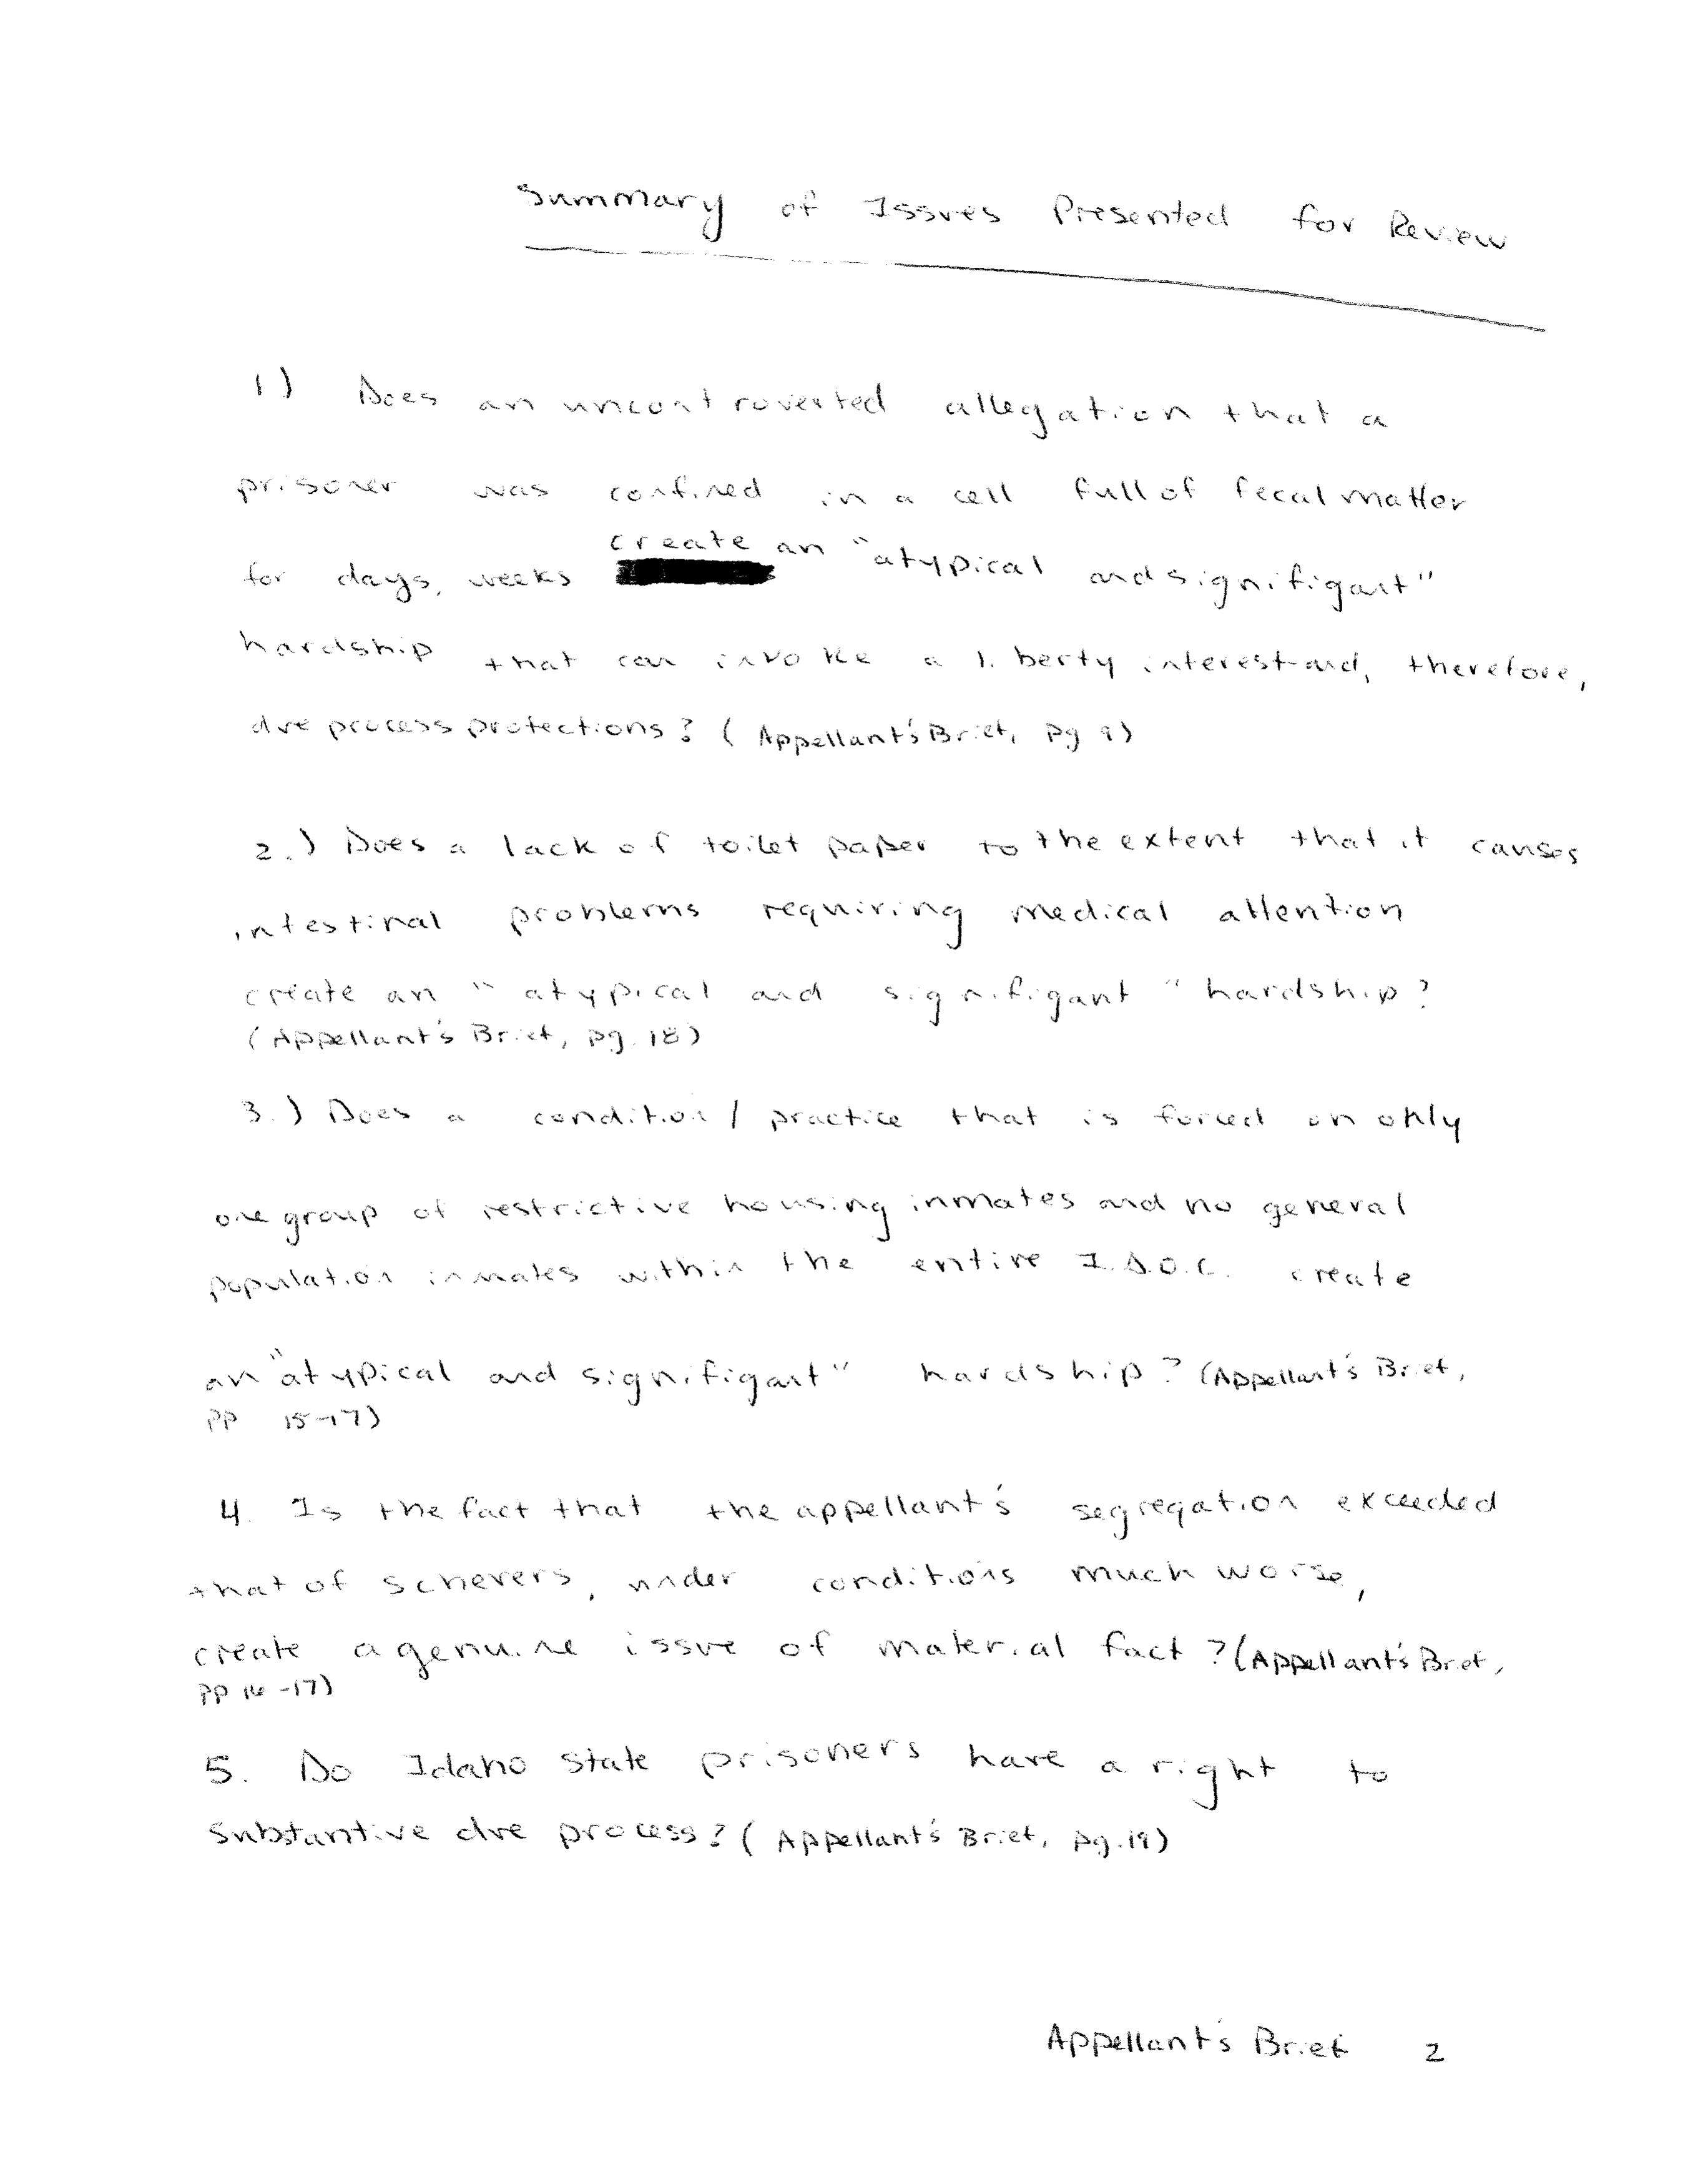 Summary of Issues Presented for Review
1) Does an uncontroverted allegation that a
prisoner was confined in a cell full of fecal matter
for days, weeks create an "atypical and signifigant"
hardship that can invoke a liberty interest and, therefore,
due process protections? (Appellant's Brief, pg 9)
2.) Does a lack of toilet paper to the extent that it causes
intestinal problems requiring medical attention
create an "atypical and signifigant" hardship?
(Appellant's Brief, pg. 18)
3.) Does a condition/practice that is forced on only
one group of restrictive housing inmates and no general
population inmates within the entire I.D.O.C. create
an "atypical and signifigant" hardship? (Appellant's Brief,
PP 15-17)
4. Is the fact that the appellant's segregation exceeded
that of schevers, under conditions much worse,
create a genuine issue of material fact? (Appellant's Brief,
PP -17)
5. Do Idaho state prisoners have a right to
substantive due process? (Appellant's Brief, pg. 19)
Appellant's Brief 2